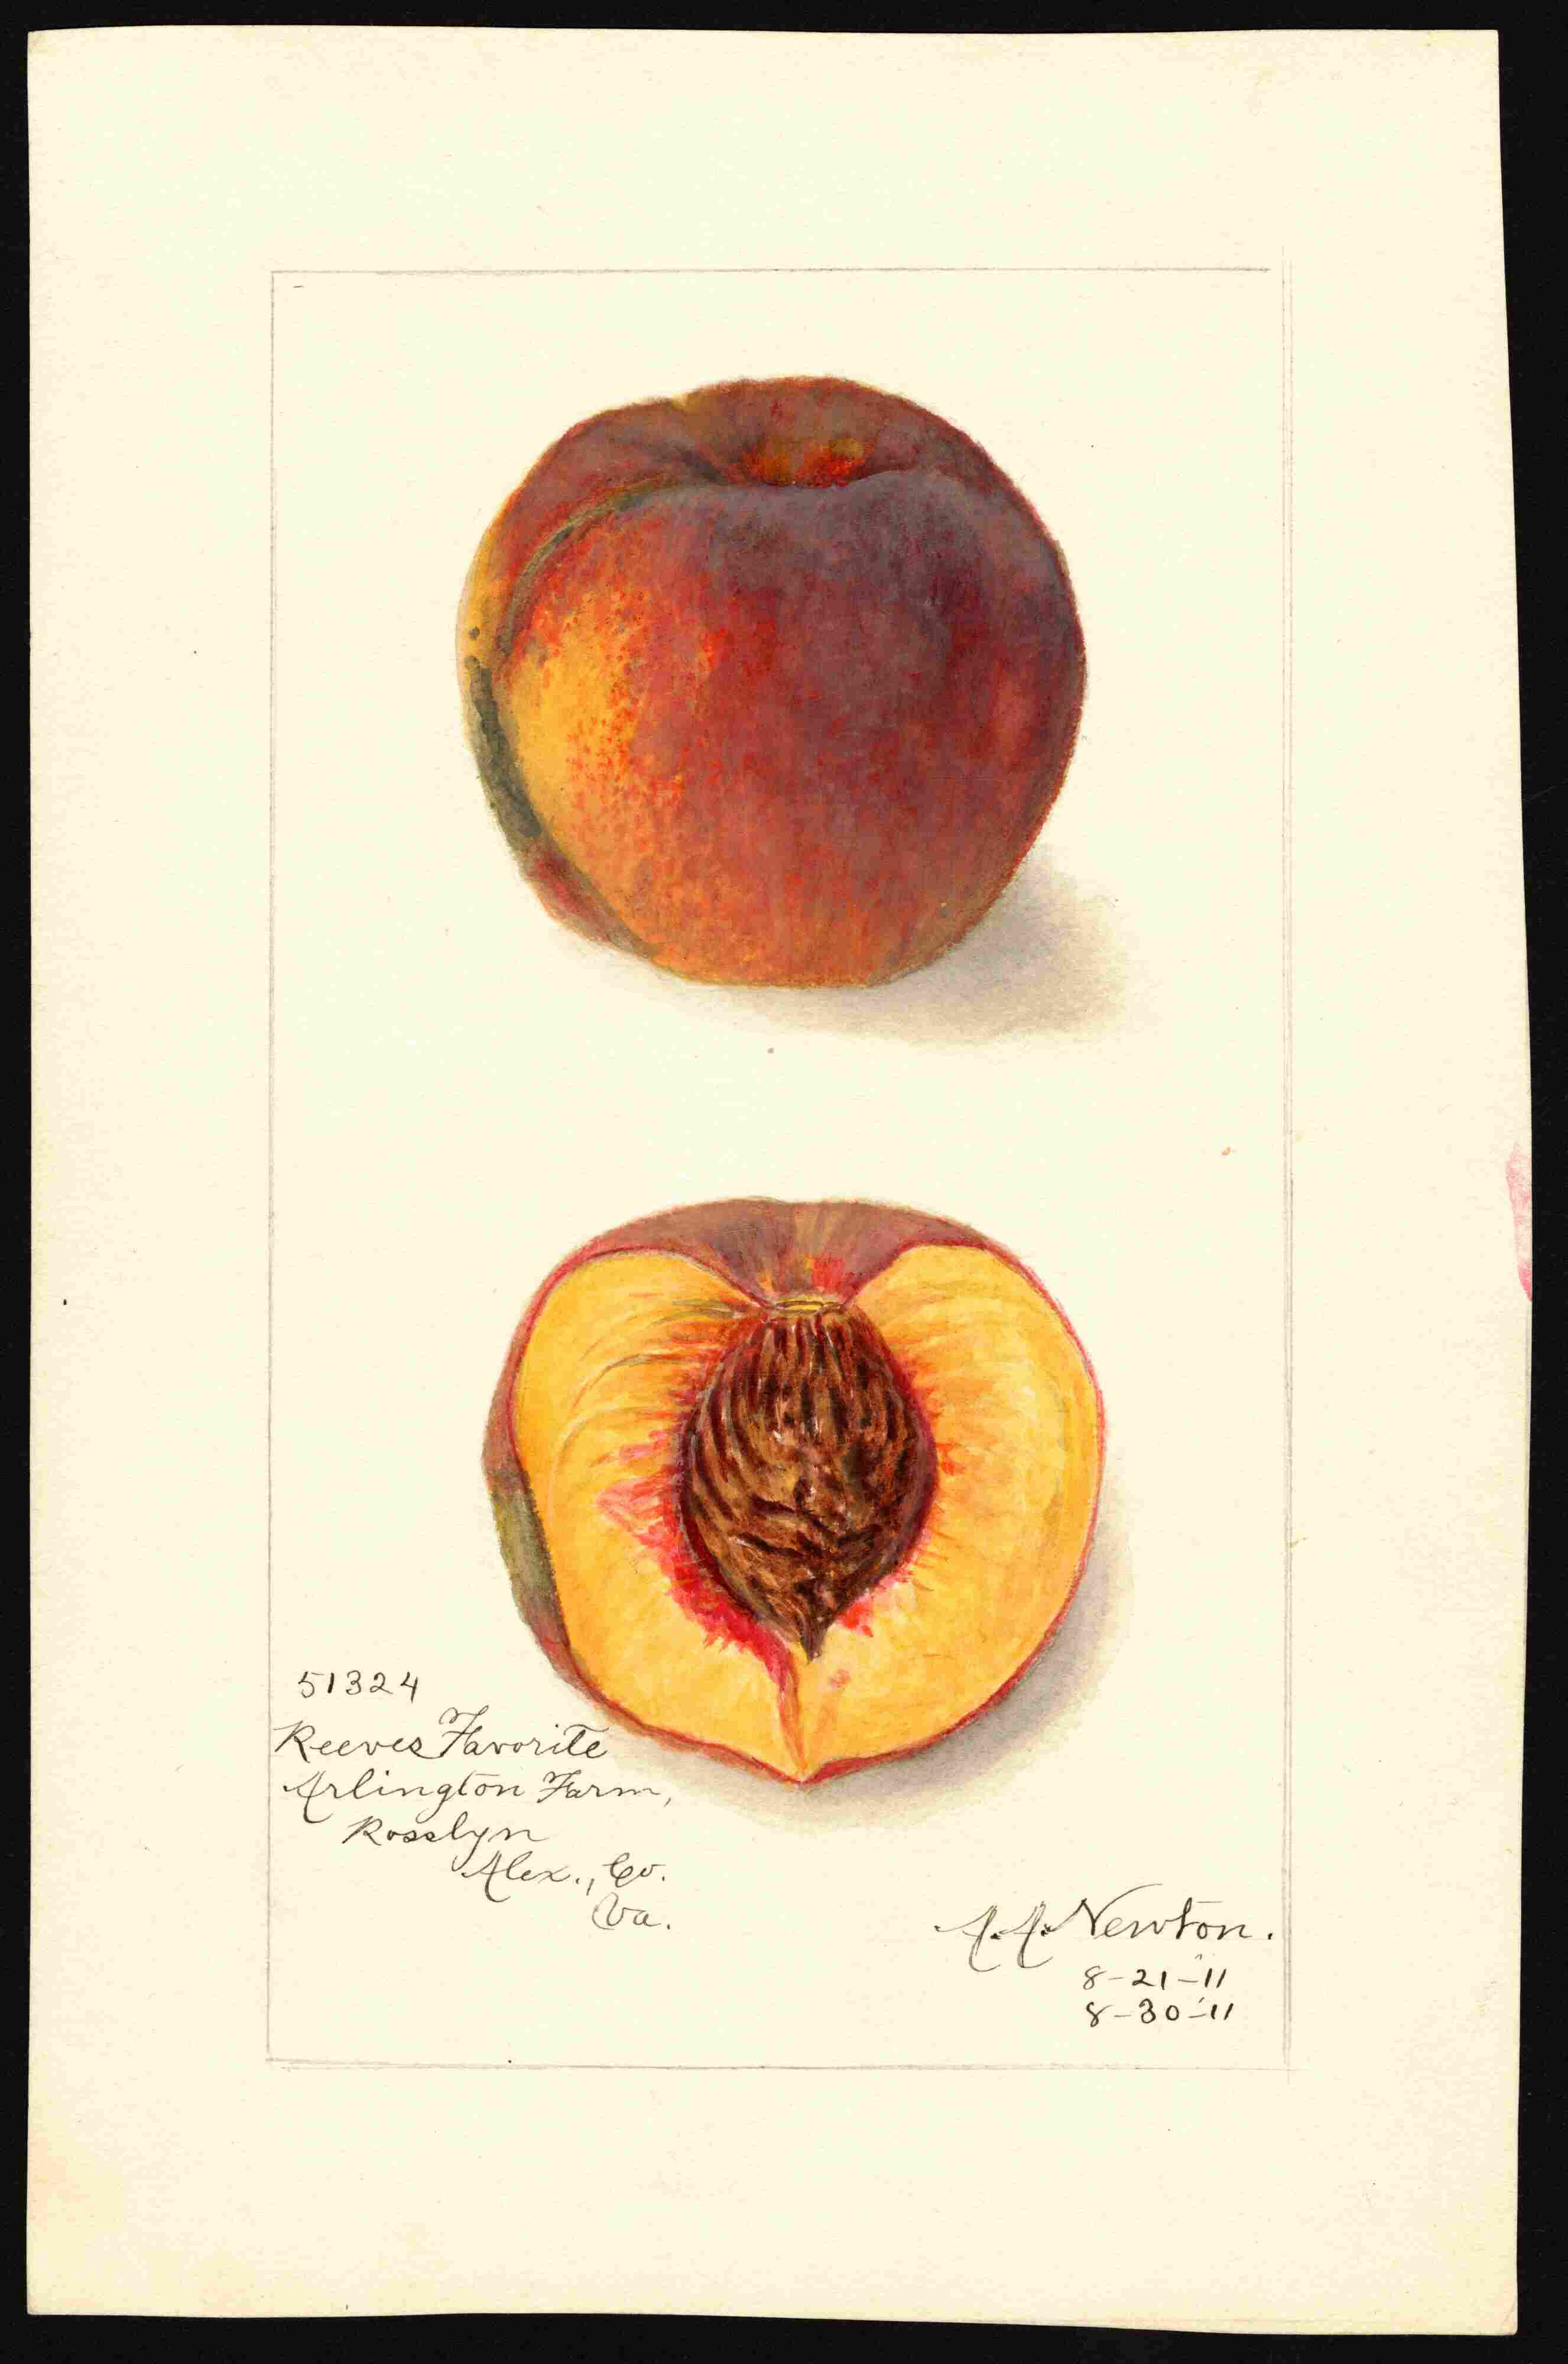 51324
Reeves Favorite
Arlington Farm,
Rosslyn
Alex., Co.
Va.
A.A. Newton.
8-21-11
8-30-11